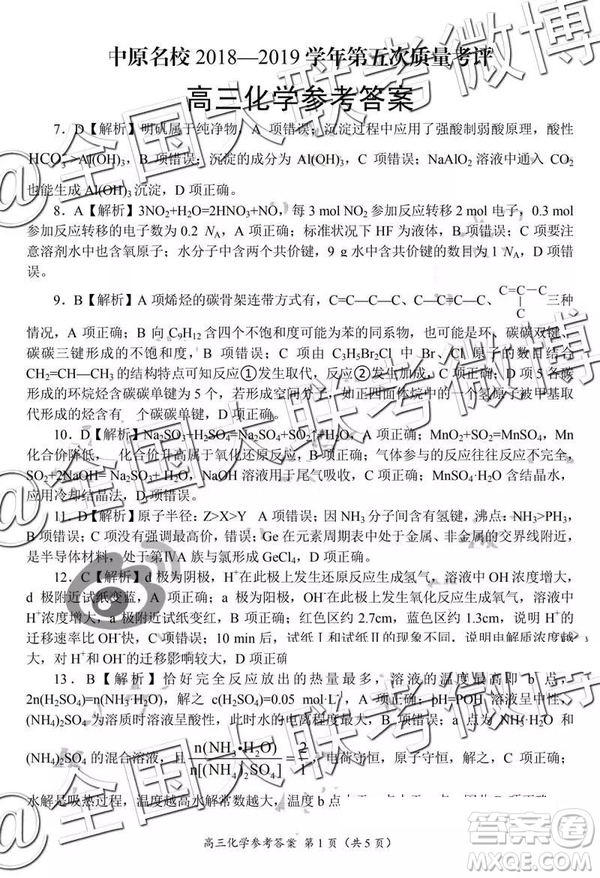 中原名校 2018—2019 学年第五次质量考评
高三化学参考答案
7．D【解析】明矾属于纯净物，A 项错误；沉淀过程中应用了强酸制弱酸原理，酸性
HCO₃⁻>Al(OH)₃，B 项错误；沉淀的成分为 Al(OH)₃，C 项错误；NaAlO₂ 溶液中通入 CO₂
也能生成 Al(OH)₃ 沉淀，D 项正确。
8．A【解析】3NO₂+H₂O=2HNO₃+NO，每 3 mol NO₂ 参加反应转移 2 mol 电子，0.3 mol
参加反应转移的电子数为 0.2 Nₐ，A 项正确；标准状况下 HF 为液体，B 项错误；C 项要注
意溶剂水中也含氧原子；水分子中含两个共价键，9 g 水中含共价键的数目为 1 Nₐ，D 项错
误。
9．B【解析】A 项烯烃的碳骨架连带方式有，C=C—C—C、C—C=C—C、C=C—C C 三种
情况，A 项正确；B 向 C₉H₁₂ 含四个不饱和度可能为苯的同系物，也可能含有环、碳碳双键、
碳碳三键形成的不饱和度，B 项错误；C 项由 C₃H₅Br₂Cl 中 Br、Cl 原子的位置及
CH₂=CH—CH₃ 的结构特点可知反应①发生取代，反应②发生加成，C 项正确；D 项 5 名碳
形成的环烷烃含碳碳单键为 5 个，若形成空间分子，如正四面体烷中的一个氢原子被甲基取
代形成的烃含有 个碳碳单键，D 项正确。
10．D【解析】Na₂SO₃+H₂SO₄=Na₂SO₄+SO₂↑+H₂O，A 项正确；MnO₂+SO₂=MnSO₄，Mn
化合价降低， 化合价升高属于氧化还原反应，B 项正确；气体参与的反应往往发生倒吸，
SO₂+2NaOH= Na₂SO₃+ H₂O，NaOH 溶液用于尾气吸收，C 项正确；MnSO₄·H₂O 含结晶水，
应用冷却结晶法，D 项错误。
11．D【解析】原子半径：Z>X>Y A 项错误；因 NH₃ 分子间含有氢键，沸点：NH₃>
B 项错误；C 项没有强调最高价，错误；Ge 在元素周期表中处于金属、非金属的交界线附近，
是半导体材料，处于第ⅣA 族与氯形成 GeCl₄，D 项正确。
12．C【解析】d 极为阴极，H⁺在此极上发生还原反应生成氢气，溶液中 OH 浓度增大，
d 极附近试纸变蓝，A 项正确；a 极为阳极，水在此极上发生氧化反应生成氧气，溶液中
H⁺浓度增大，a 极附近试纸变红，B 项正确；红色区约 2.7cm，蓝色区约 1.3cm，说明 H⁺的
迁移速率比 OH⁻快，C 项错误；10 min 后，试纸Ⅰ和试纸Ⅱ的现象不同，说明电解质浓度越
大，对 H⁺和 OH⁻的迁移影响越大，D 项正确
13．B【解析】恰好完全反应放出的热量最多，溶液的温度最高即 b 点，
2n(H₂SO₄)=n(NH₃·H₂O)，解之 c(H₂SO₄)=0.05 mol·L⁻¹，A 项正确；pH=
(NH₄)₂SO₄ 为溶质时溶液呈酸性，此时水的电离程度最大，B 项错误；a 点为 NH₃·H₂O 和
(NH₄)₂SO₄ 的混合溶液，且 n(NH₃·H₂O)/n[(NH₄)₂SO₄] = 2/1，电荷守恒，原子守恒，解之 C 项正确；
水解是吸热过程，温度越高水解常数越大，温度 b 点 D 项正确
高三化学参考答案 第 1 页（共 5 页）
@全国大联考微博
答案圈
MXQE.COM